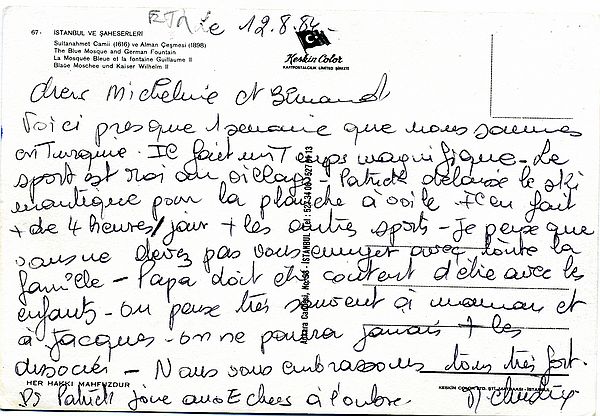 ETR Le 12.8.84.
67- ISTANBUL VE ŞAHESERLERİ
Sultanahmet Camii (1616) ve Alman Çeşmesi (1898)
The Blue Mosque and German Fountain
La Mosquée Bleue et la fontaine Guillaume II
Blaue Moschee und Kaiser Wilhelm II
Keskin Color
KARTPOSTALCILIK LIMITED ŞİRKETİ
Chers Micheline et Bernard
Voici presque 1 semaine que nous sommes
en Turquie. Il fait un Temps magnifique - Le
sport est roi au village. Patrick délaisse le ski
nautique pour la planche à voile. Il en fait
+ de 4 heures/jour + les autres sports - Je pense que
vous ne devez pas vous ennuyer avec toute la
famille - Papa doit être content d'être avec les
enfants - on pense très souvent à maman et
à Jacques - on ne pourra jamais + les
dissocier - Nous vous embrassons tous très fort.
HER HAKKI MAHFUZDUR
PS Patrick joue aux Echecs à l'ombre.
Ankara Caddesi, No: 98 - İSTANBUL